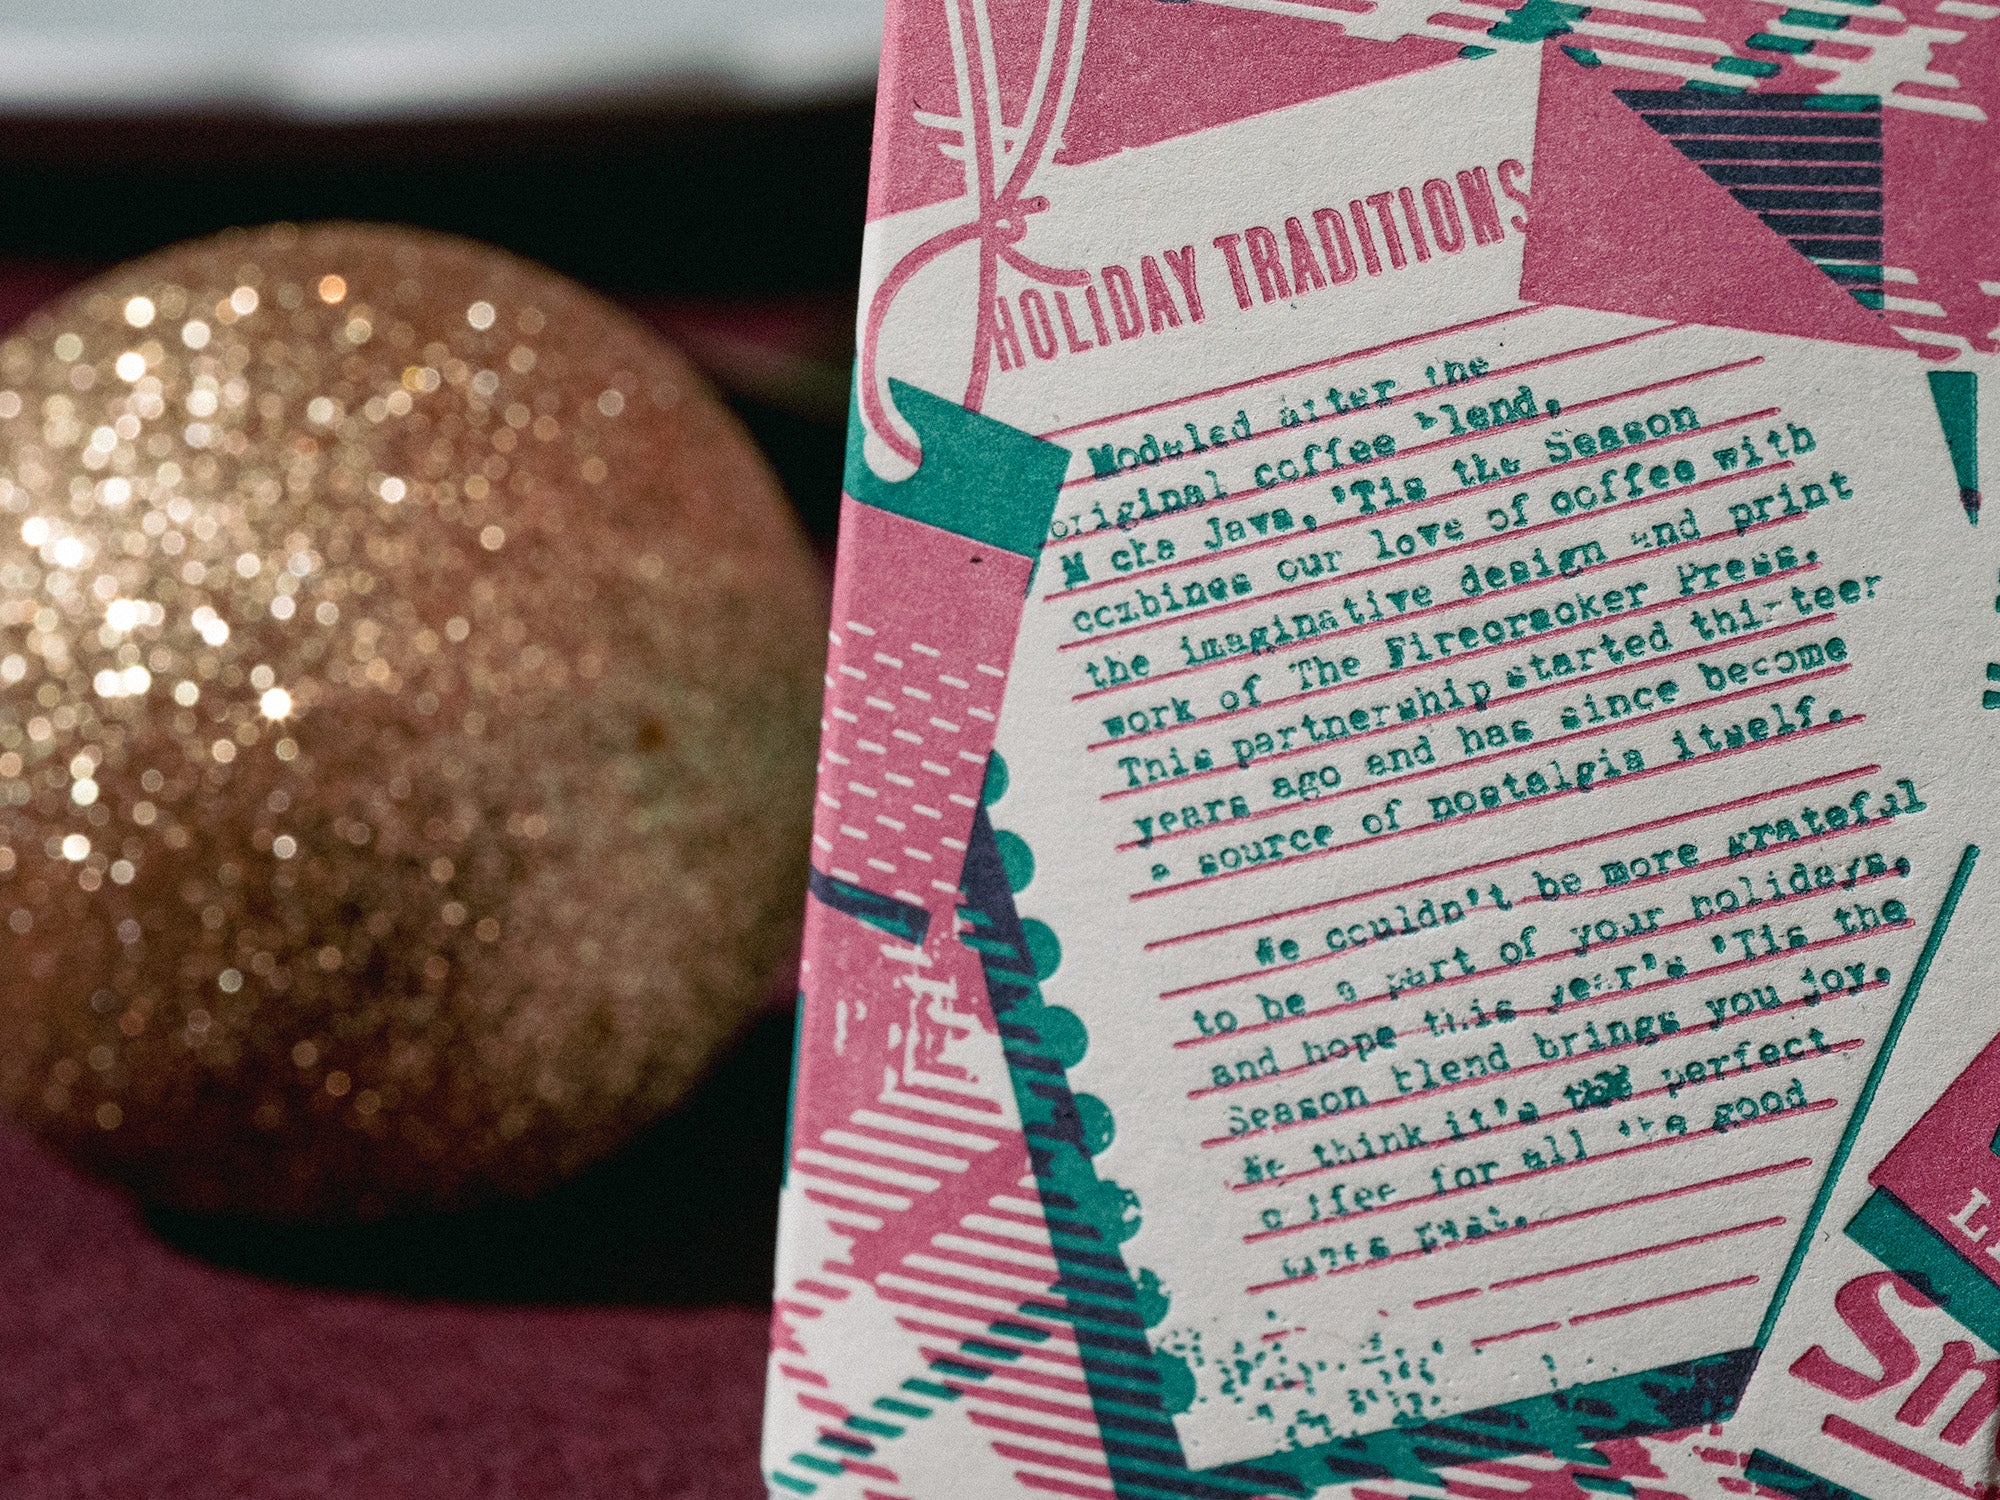 HOLIDAY TRADITIONS
Modeled after the
original coffee blend,
Mocha Java, 'Tis the Season
combines our love of coffee with
the imaginative design and print
work of The Firecracker Press.
This partnership started thirteen
years ago and has since become
a source of nostalgia itself.
We couldn't be more grateful
to be a part of your holidays,
and hope this year's 'Tis the
Season blend brings you joy.
We think it's the perfect
coffee for all the good